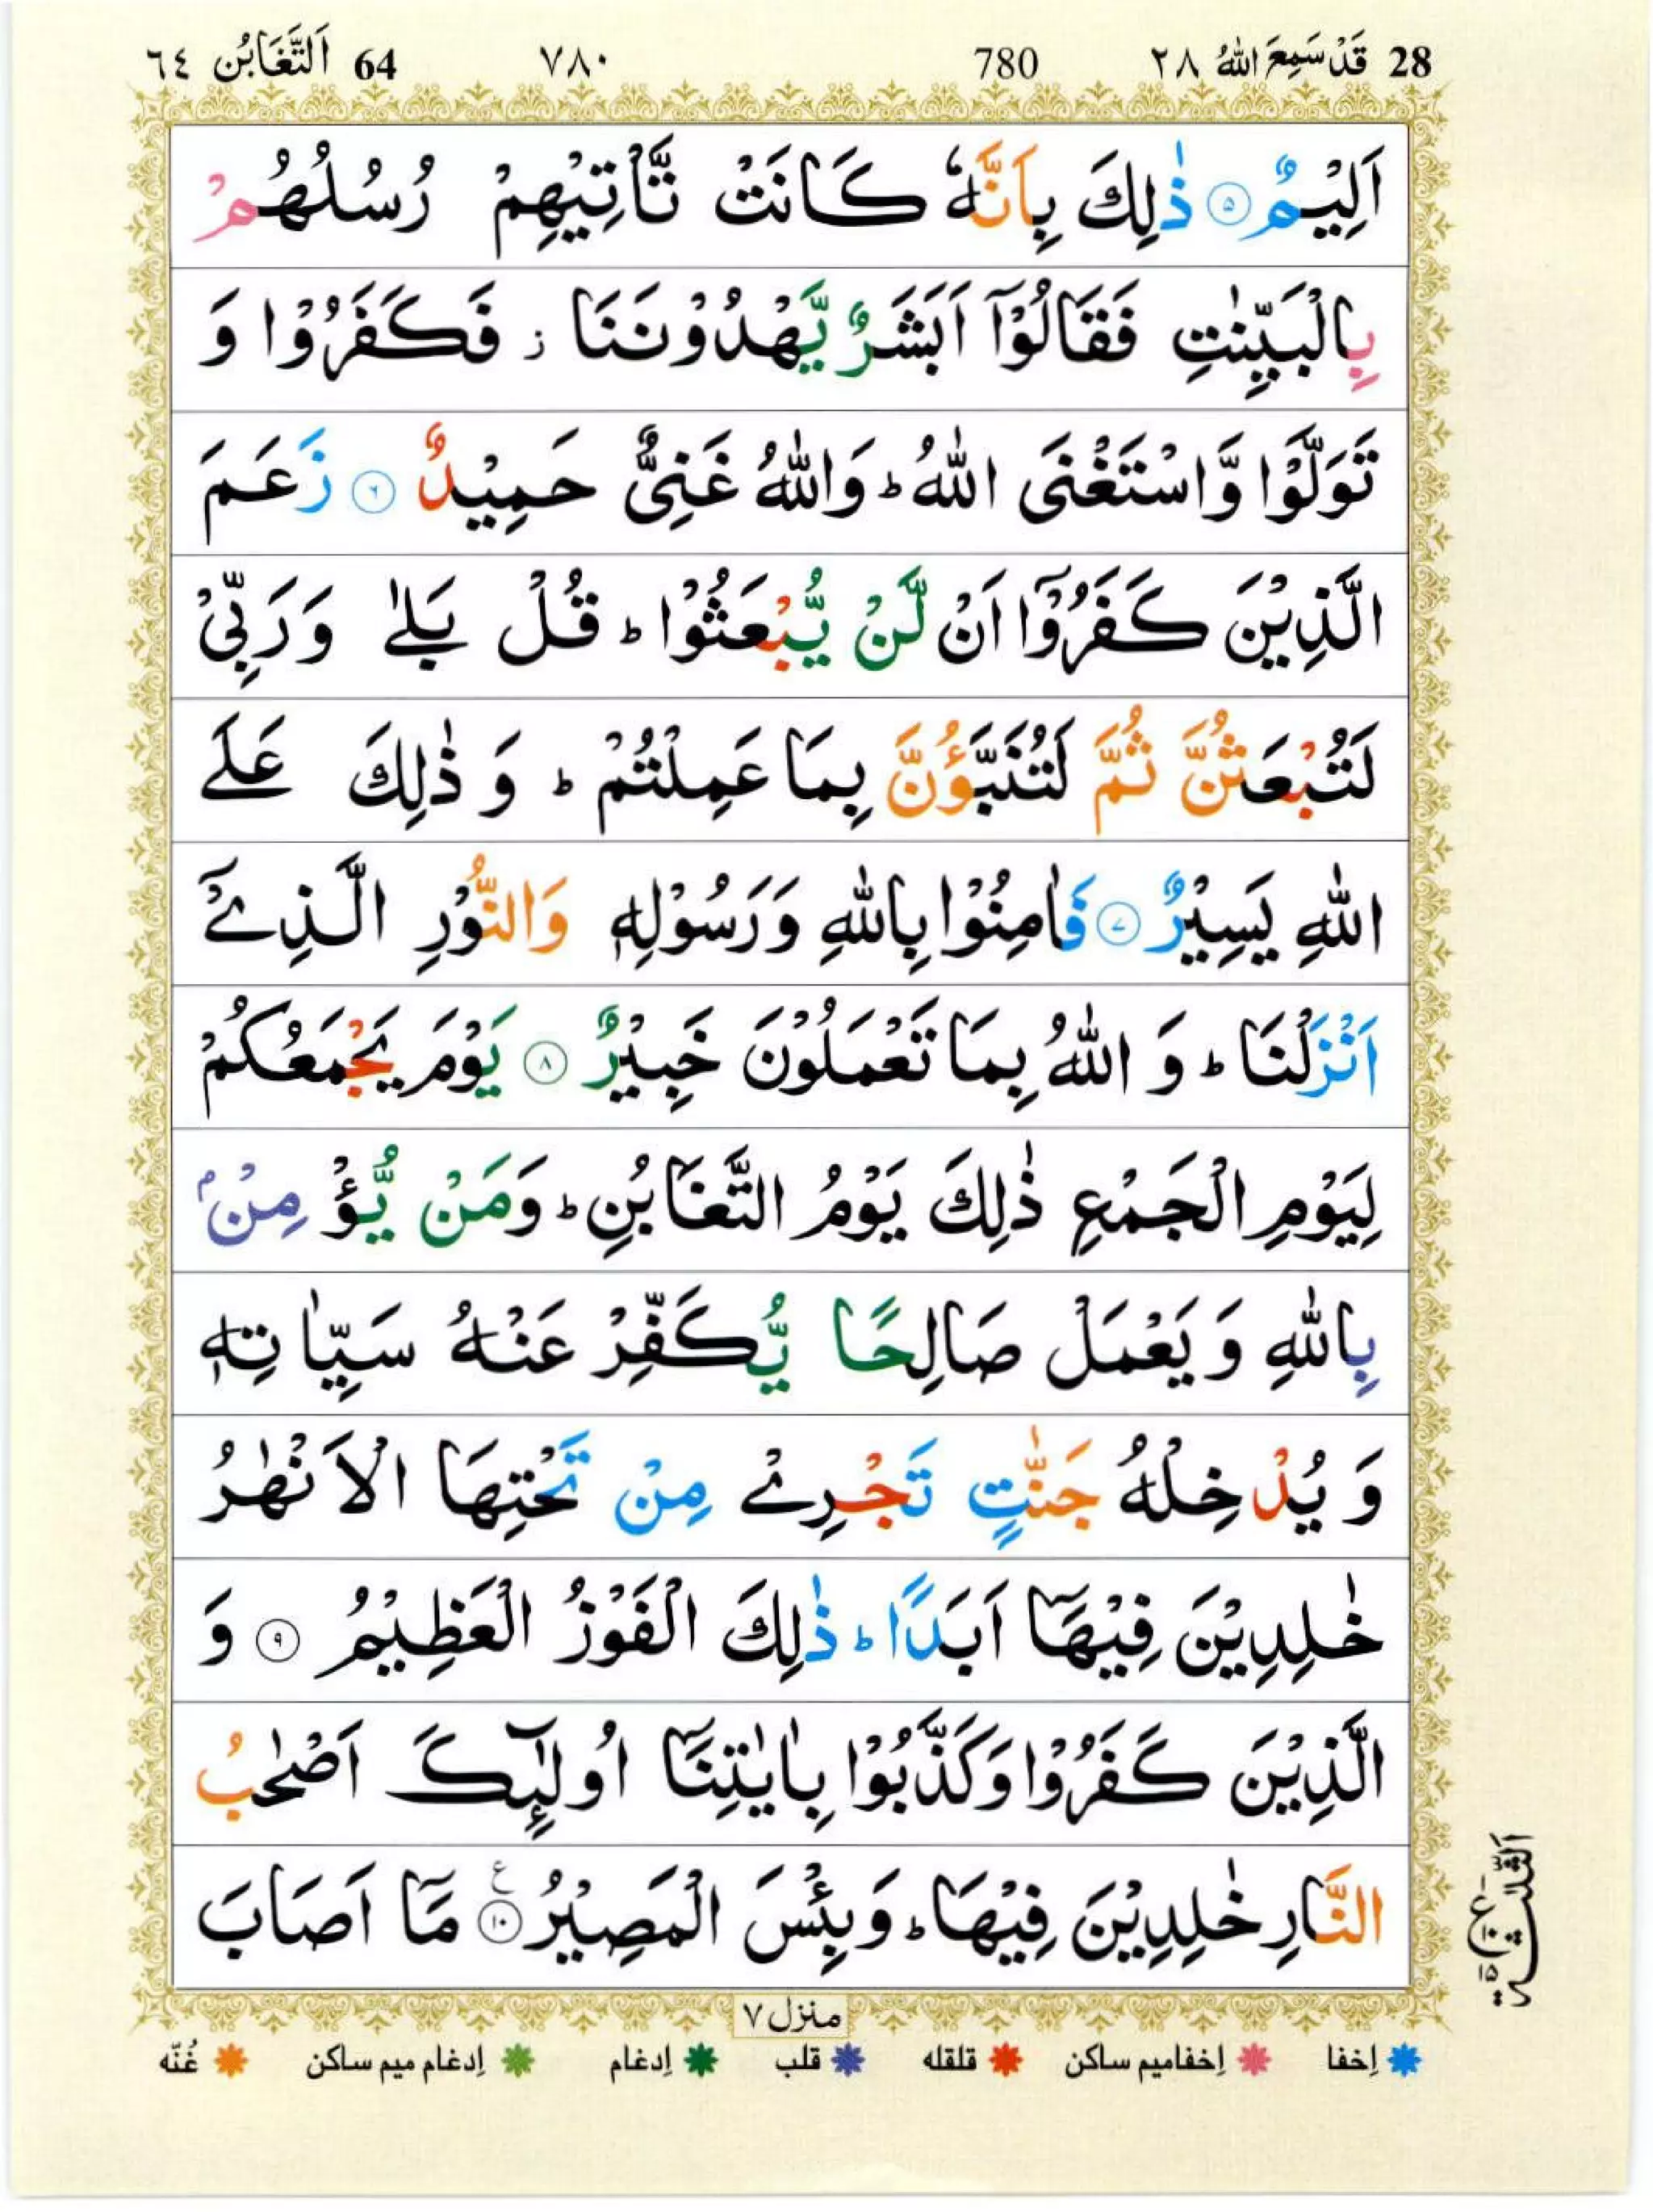 28 قَدْ سَمِعَ اللّٰهُ ٢٨ 780 ٧٨٠ 64 اَلتَّغَابُن ٦٤
اَلِيْمٌ ۝٥ ذٰلِكَ بِاَنَّهٗ كَانَتْ تَّاْتِيْهِمْ رُسُلُهُمْ
بِالْبَيِّنٰتِ فَقَالُوْٓا اَبَشَرٌ يَّهْدُوْنَنَا ز فَكَفَرُوْا وَ
تَوَلَّوْا وَّاسْتَغْنَى اللّٰهُ ؕ وَاللّٰهُ غَنِىٌّ حَمِيْدٌ ۝٦ زَعَمَ
الَّذِيْنَ كَفَرُوْٓا اَنْ لَّنْ يُّبْعَثُوْا ؕ قُلْ بَلٰى وَرَبِّىْ
لَتُبْعَثُنَّ ثُمَّ لَتُنَبَّؤُنَّ بِمَا عَمِلْتُمْ ؕ وَ ذٰلِكَ عَلَے
اللّٰهِ يَسِيْرٌ ۝٧ فَاٰمِنُوْا بِاللّٰهِ وَرَسُوْلِهٖ وَالنُّوْرِ الَّذِےْٓ
اَنْزَلْنَا ؕ وَ اللّٰهُ بِمَا تَعْمَلُوْنَ خَبِيْرٌ ۝٨ يَوْمَ يَجْمَعُكُمْ
لِيَوْمِ الْجَمْعِ ذٰلِكَ يَوْمُ التَّغَابُنِ ؕ وَمَنْ يُّؤْ مِنْۢ
بِاللّٰهِ وَ يَعْمَلْ صَالِحًا يُّكَفِّرْ عَنْهُ سَيِّاٰتِهٖ
وَ يُدْخِلْهُ جَنّٰتٍ تَجْرِےْ مِنْ تَحْتِهَا الْاَنْهٰرُ
خٰلِدِيْنَ فِيْهَآ اَبَدًا ؕ ذٰلِكَ الْفَوْزُ الْعَظِيْمُ ۝٩ وَ
الَّذِيْنَ كَفَرُوْا وَكَذَّبُوْا بِاٰيٰتِنَآ اُولٰٓئِكَ اَصْحٰبُ
النَّارِ خٰلِدِيْنَ فِيْهَا ؕ وَبِئْسَ الْمَصِيْرُ ۝١٠ ع مَآ اَصَابَ
الثلٰثة
ع
١٥
منزل ٧
اِخفا اِخفامیم ساکن قلقله قلب اِدغام اِدغام میم ساکن غُنّه